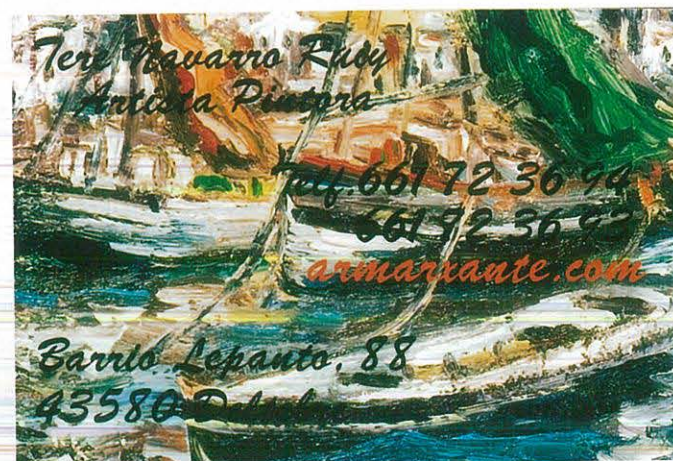 Teri Navarro Ruby
Artista Pintora
Telf. 661 72 36 94
661 72 36 93
armarxante.com
Barrio Lepanto, 88
43580 Deltebre